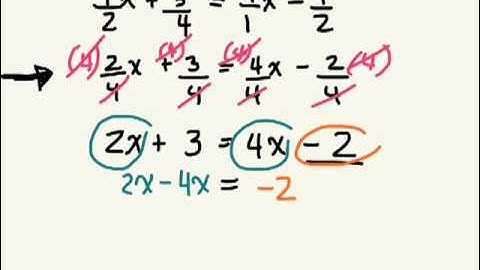 1/2 x + 3/4 = 1/1 x − 1/2
(4) 2/4 x + (4) 3/4 = (4) 4/4 x − 2/4 (4)
2x + 3 = 4x − 2
2x − 4x = −2